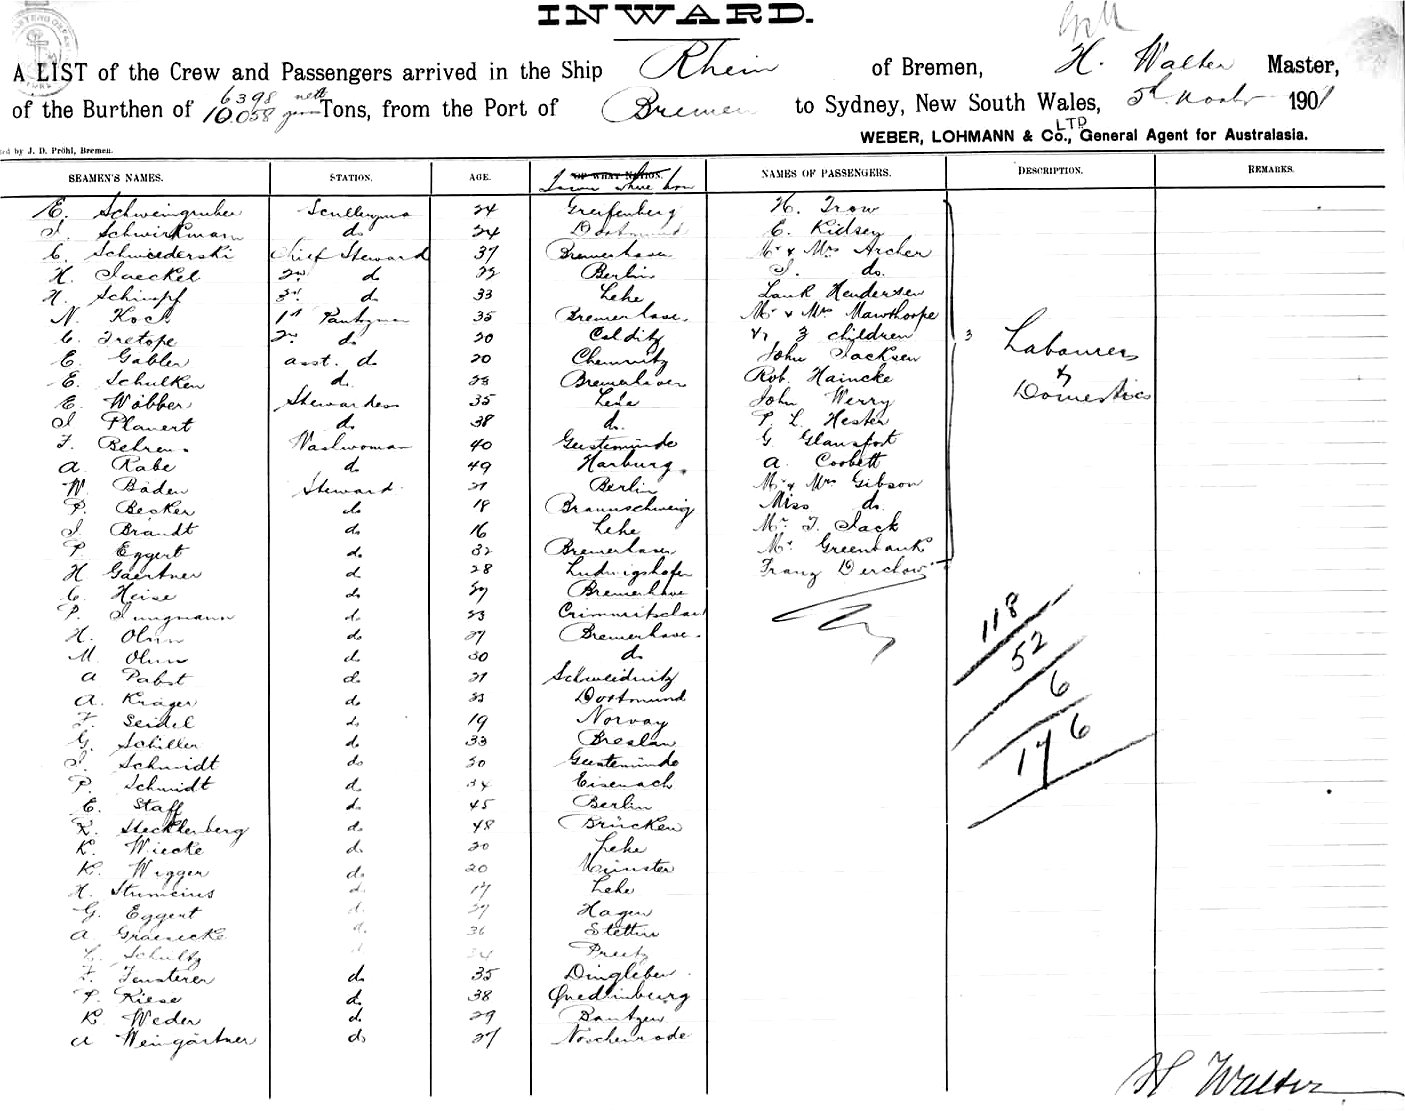 INWARD.
A LIST of the Crew and Passengers arrived in the Ship Rhein of Bremen, H. Walter Master,
of the Burthen of 6398 nett 10.058 gross Tons, from the Port of Bremen to Sydney, New South Wales, 5th 1901
WEBER, LOHMANN & Co., LTD General Agent for Australasia.
ted by J. D. Pröhl, Bremen.
SEAMEN'S NAMES. STATION. AGE. OF WHAT NATION. Town where born NAMES OF PASSENGERS. DESCRIPTION. REMARKS.
E. Schweingruber 24 Greifenberg H. Trow
J. Schwirkmann do 24 Dortmund E. Kidsey
C. Schmiederski Chief Steward 37 Bremerhaven Mr & Mrs Archer
H. Jaeckel 2nd do 22 Berlin J. do.
H. Schimpf 3rd do 33 Lehe Hendersen
N. Koch 1st Pantryman 35 Bremerhave. Mr & Mrs Mawthorpe
C. Tretope 2nd do 20 Colditz & 3 children 3 Labourers
E. Gabler asst. do 20 Chemnitz John Jacksen &
E. Schulken do. 28 Bremerhaven Rob. Haincke Domestics
E. Wöbber Stewardess 35 Lehe John Werry
J Planert do 38 do. P. L. Hester
F. Behrens Washwoman 40 Geestemünde G Glansfort
A. Rabe do 49 Harburg. A. Corbett
W. Bäden Steward 21 Berlin Mr & Mrs Gibson
P. Becker do 18 Braunschweig Miss do.
J Brandt do 16 Lehe Mr. T. Jack
P. Eggert do 32 Bremerhaven Mr. Greenbank
H Gaertner do 28 Ludwigshafen Franz Derclow
C. Heise do 27 Bremerhave
P. Jungmann do 23 118
H. Olum do 27 Bremerhave. 52
M. Olum do 30 do. 6
A Pabst do 21 Schweidnitz 176
A. Kräger do 23 Dortmund
F. Seidel do 19 Norway
G. Schiller do 33 Breslau
J. Schmidt do 20 Geestemünde
P. Schmidt do 24 Eisenach
E. Staff do 45 Berlin
R. Stecklenberg do 48 Brücken
K. Wiecke do 20 Lehe
K. Wigger do 20 Münster
H. Stumcius d. 17 Lehe
G. Eggert d. 27 Hagen
A Graenicke d. 36 Stettin
C. Schultz d 34 Preetz
F. Fensterer do 35 Dingleben
P. Riese do 38 Quedlinburg
K Weder do 29 Bautzen
A Weingärtner do 27 Noschenrode
H Walter